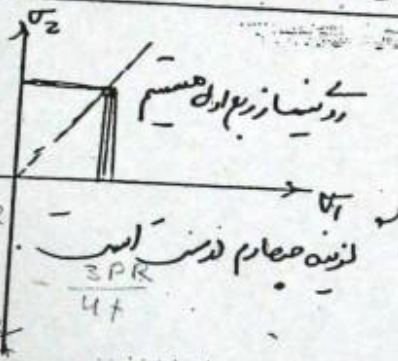 σ₂
روی نیمساز ربع اول هستیم
σ₁
گزینه چهارم درست است.
3PR
4t